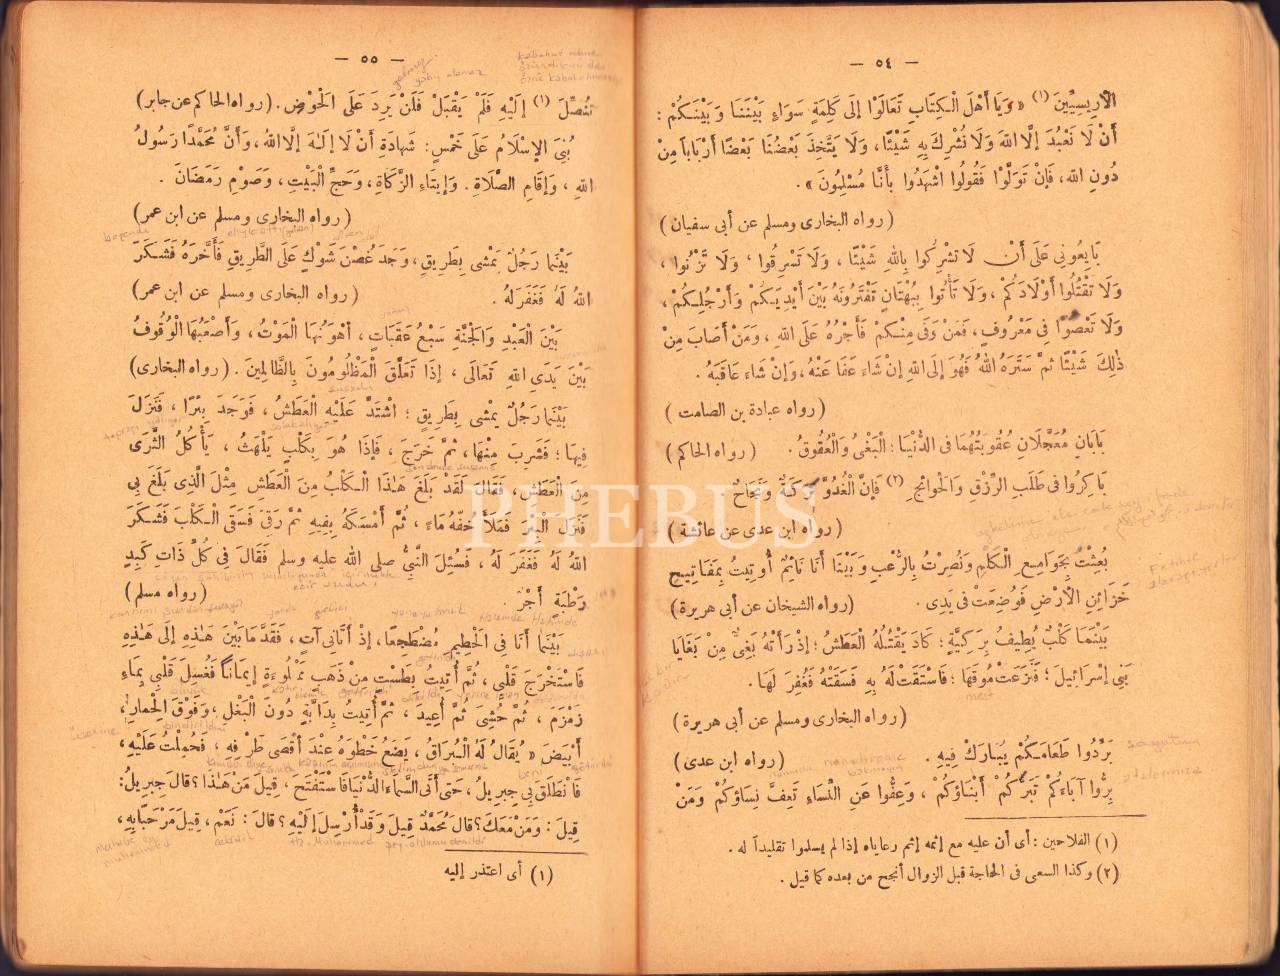 — ٥٤ —
الْأَرِيسِيِّينَ (١) «وَيَا أَهْلَ الْكِتَابِ تَعَالَوْا إِلَى كَلِمَةٍ سَوَاءٍ بَيْنَنَا وَبَيْنَكُمْ :
أَنْ لَا نَعْبُدَ إِلَّا اللهَ وَلَا نُشْرِكَ بِهِ شَيْئًا، وَلَا يَتَّخِذَ بَعْضُنَا بَعْضًا أَرْبَابًا مِنْ
دُونِ اللهِ، فَإِنْ تَوَلَّوْا فَقُولُوا اشْهَدُوا بِأَنَّا مُسْلِمُونَ» .
(رواه البخارى ومسلم عن أبى سفيان)
بَايِعُونِى عَلَى أَنْ لَا تُشْرِكُوا بِاللهِ شَيْئًا ، وَلَا تَسْرِقُوا ، وَلَا تَزْنُوا ،
وَلَا تَقْتُلُوا أَوْلَادَكُمْ ، وَلَا تَأْتُوا بِبُهْتَانٍ تَفْتَرُونَهُ بَيْنَ أَيْدِيَكُمْ وَأَرْجُلِكُمْ ،
وَلَا تَعْصُوا فِى مَعْرُوفٍ، فَمَنْ وَفَى مِنْكُمْ فَأَجْرُهُ عَلَى اللهِ ، وَمَنْ أَصَابَ مِنْ
ذٰلِكَ شَيْئًا ثُمَّ سَتَرَهُ اللهُ فَهُوَ إِلَى اللهِ إِنْ شَاءَ عَفَا عَنْهُ، وَإِنْ شَاءَ عَاقَبَهُ .
(رواه عبادة بن الصامت)
بَابَانِ مُعَجَّلَانِ عُقُوبَتُهُمَا فى الدُّنْيَا ؛ الْبَغْىُ وَالْعُقُوقُ . (رواه الحاكم)
بَاكِرُوا فى طَلَبِ الرِّزْقِ وَالْحَوائِجِ (٢) فَإِنَّ الْغُدُوَّ بَرَكَةٌ وَنَجَاحٌ
(رواه ابن عدى عن عائشة)
بُعِثْتُ بِجَوَامِعِ الْكَلِمِ وَنُصِرْتُ بِالرُّعْبِ وَبَيْنَا أَنَا نَائِمٌ أُوتِيتُ بِمَفَاتِيحِ
خَزَائِنِ الْأَرْضِ فَوُضِعَتْ فى يَدِى . (رواه الشيخان عن أبى هريرة)
بَيْنَمَا كَلْبٌ يُطِيفُ بِرَكِيَّةٍ ؛ كَادَ يَقْتُلُهُ الْعَطَشُ ؛ إِذْ رَأَتْهُ بَغِىٌّ مِنْ بَغَايَا
بَنِى إِسْرَائِيلَ ؛ فَنَزَعَتْ مُوقَهَا ؛ فَاسْتَقَتْ لَهُ بِهِ فَسَقَتْهُ فَغُفِرَ لَهَا .
(رواه البخارى ومسلم عن أبى هريرة)
بَرِّدُوا طَعَامَكُمْ يُبَارَكْ فِيهِ . (رواه ابن عدى)
بِرُّوا آبَاءَكُمْ تَبَرَّكُمْ أَبْنَاؤُكُمْ ، وَعِفُّوا عَنِ النِّسَاءِ تَعِفَّ نِسَاؤُكُمْ وَمَنْ
(١) الفلاحين : أى أن عليه مع إثمه إثم رعاياه إذا لم يسلموا تقليداً له .
(٢) وكذا السعى فى الحاجة قبل الزوال أنجح من بعده كما قيل .
— ٥٥ —
تُنُصِّلَ (١) إِلَيْهِ فَلَمْ يَقْبَلْ فَلَنْ يَرِدَ عَلَى الْحَوْضِ . (رواه الحاكم عن جابر)
بُنِىَ الْإِسْلَامُ عَلَى خَمْسٍ : شَهَادَةِ أَنْ لَا إِلٰهَ إِلَّا اللهُ، وَأَنَّ مُحَمَّدًا رَسُولُ
اللهِ ، وَإِقَامِ الصَّلَاةِ . وَإِيتَاءِ الزَّكَاةِ ، وَحَجِّ الْبَيْتِ ، وَصَوْمِ رَمَضَانَ .
(رواه البخارى ومسلم عن ابن عمر)
بَيْنَمَا رَجُلٌ يَمْشِى بِطَرِيقٍ ، وَجَدَ غُصْنَ شَوْكٍ عَلَى الطَّرِيقِ فَأَخَّرَهُ فَشَكَرَ
اللهُ لَهُ فَغَفَرَ لَهُ . (رواه البخارى ومسلم عن ابن عمر)
بَيْنَ الْعَبْدِ وَالْجَنَّةِ سَبْعُ عَقَبَاتٍ ، أَهْوَنُهَا الْمَوْتُ ، وَأَصْعَبُهَا الْوُقُوفُ
بَيْنَ يَدَىِ اللهِ تَعَالَى ، إِذَا تَعَلَّقَ الْمَظْلُومُونَ بِالظَّالِمِينَ . (رواه البخارى)
بَيْنَمَا رَجُلٌ يَمْشِى بِطَرِيقٍ ؛ اشْتَدَّ عَلَيْهِ الْعَطَشُ ، فَوَجَدَ بِئْرًا ، فَنَزَلَ
فِيهَا ؛ فَشَرِبَ مِنْهَا، ثُمَّ خَرَجَ ، فَإِذَا هُوَ بِكَلْبٍ يَلْهَثُ ، يَأْكُلُ الثَّرَى
مِنَ الْعَطَشِ، فَقَالَ لَقَدْ بَلَغَ هٰذَا الْكَلْبُ مِنَ الْعَطَشِ مِثْلَ الَّذِى بَلَغَ بِى
فَنَزَلَ الْبِئْرَ فَمَلَأَ خُفَّهُ مَاءً ، ثُمَّ أَمْسَكَهُ بِفِيهِ ثُمَّ رَقِىَ فَسَقَى الْكَلْبَ فَشَكَرَ
اللهُ لَهُ فَغَفَرَ لَهُ ، فَسُئِلَ النَّبِىُّ صلى الله عليه وسلم فَقَالَ فِى كُلِّ ذَاتِ كَبِدٍ
رَطْبَةٍ أَجْرٌ . (رواه مسلم)
بَيْنَمَا أَنَا فِى الْحَطِيمِ مُضْطَجِعًا، إِذْ أَتَانِى آتٍ، فَقَدَّ مَا بَيْنَ هٰذِهِ إِلَى هٰذِهِ
فَاسْتَخْرَجَ قَلْبِى ، ثُمَّ أُتِيتُ بِطَسْتٍ مِنْ ذَهَبٍ مَمْلُوءَةٍ إِيمَانًا فَغُسِلَ قَلْبِى بِمَاءِ
زَمْزَمَ ، ثُمَّ حُشِىَ ثُمَّ أُعِيدَ ، ثُمَّ أُتِيتُ بِدَابَّةٍ دُونَ الْبَغْلِ ، وَفَوْقَ الْحِمَارِ ،
أَبْيَضَ « يُقَالُ لَهُ الْبُرَاقُ ، يَضَعُ خَطْوَهُ عِنْدَ أَقْصَى طَرْفِهِ ، فَحُمِلْتُ عَلَيْهِ ،
فَانْطَلَقَ بِى جِبْرِيلُ، حَتَى أَتَى السَّمَاءَ الدُّنْيَا فَاسْتَفْتَحَ ، قِيلَ مَنْ هٰذَا ؟ قالَ جِبْرِيلُ :
قِيلَ : وَمَنْ مَعَكَ ؟ قَالَ مُحَمَّدٌ قِيلَ وَقَدْ أُرْسِلَ إِلَيْهِ ؟ قَالَ : نَعَمْ ، قِيلَ مَرْحَبًا بِهِ ،
(١) أى اعتذر إليه
PHEBUS